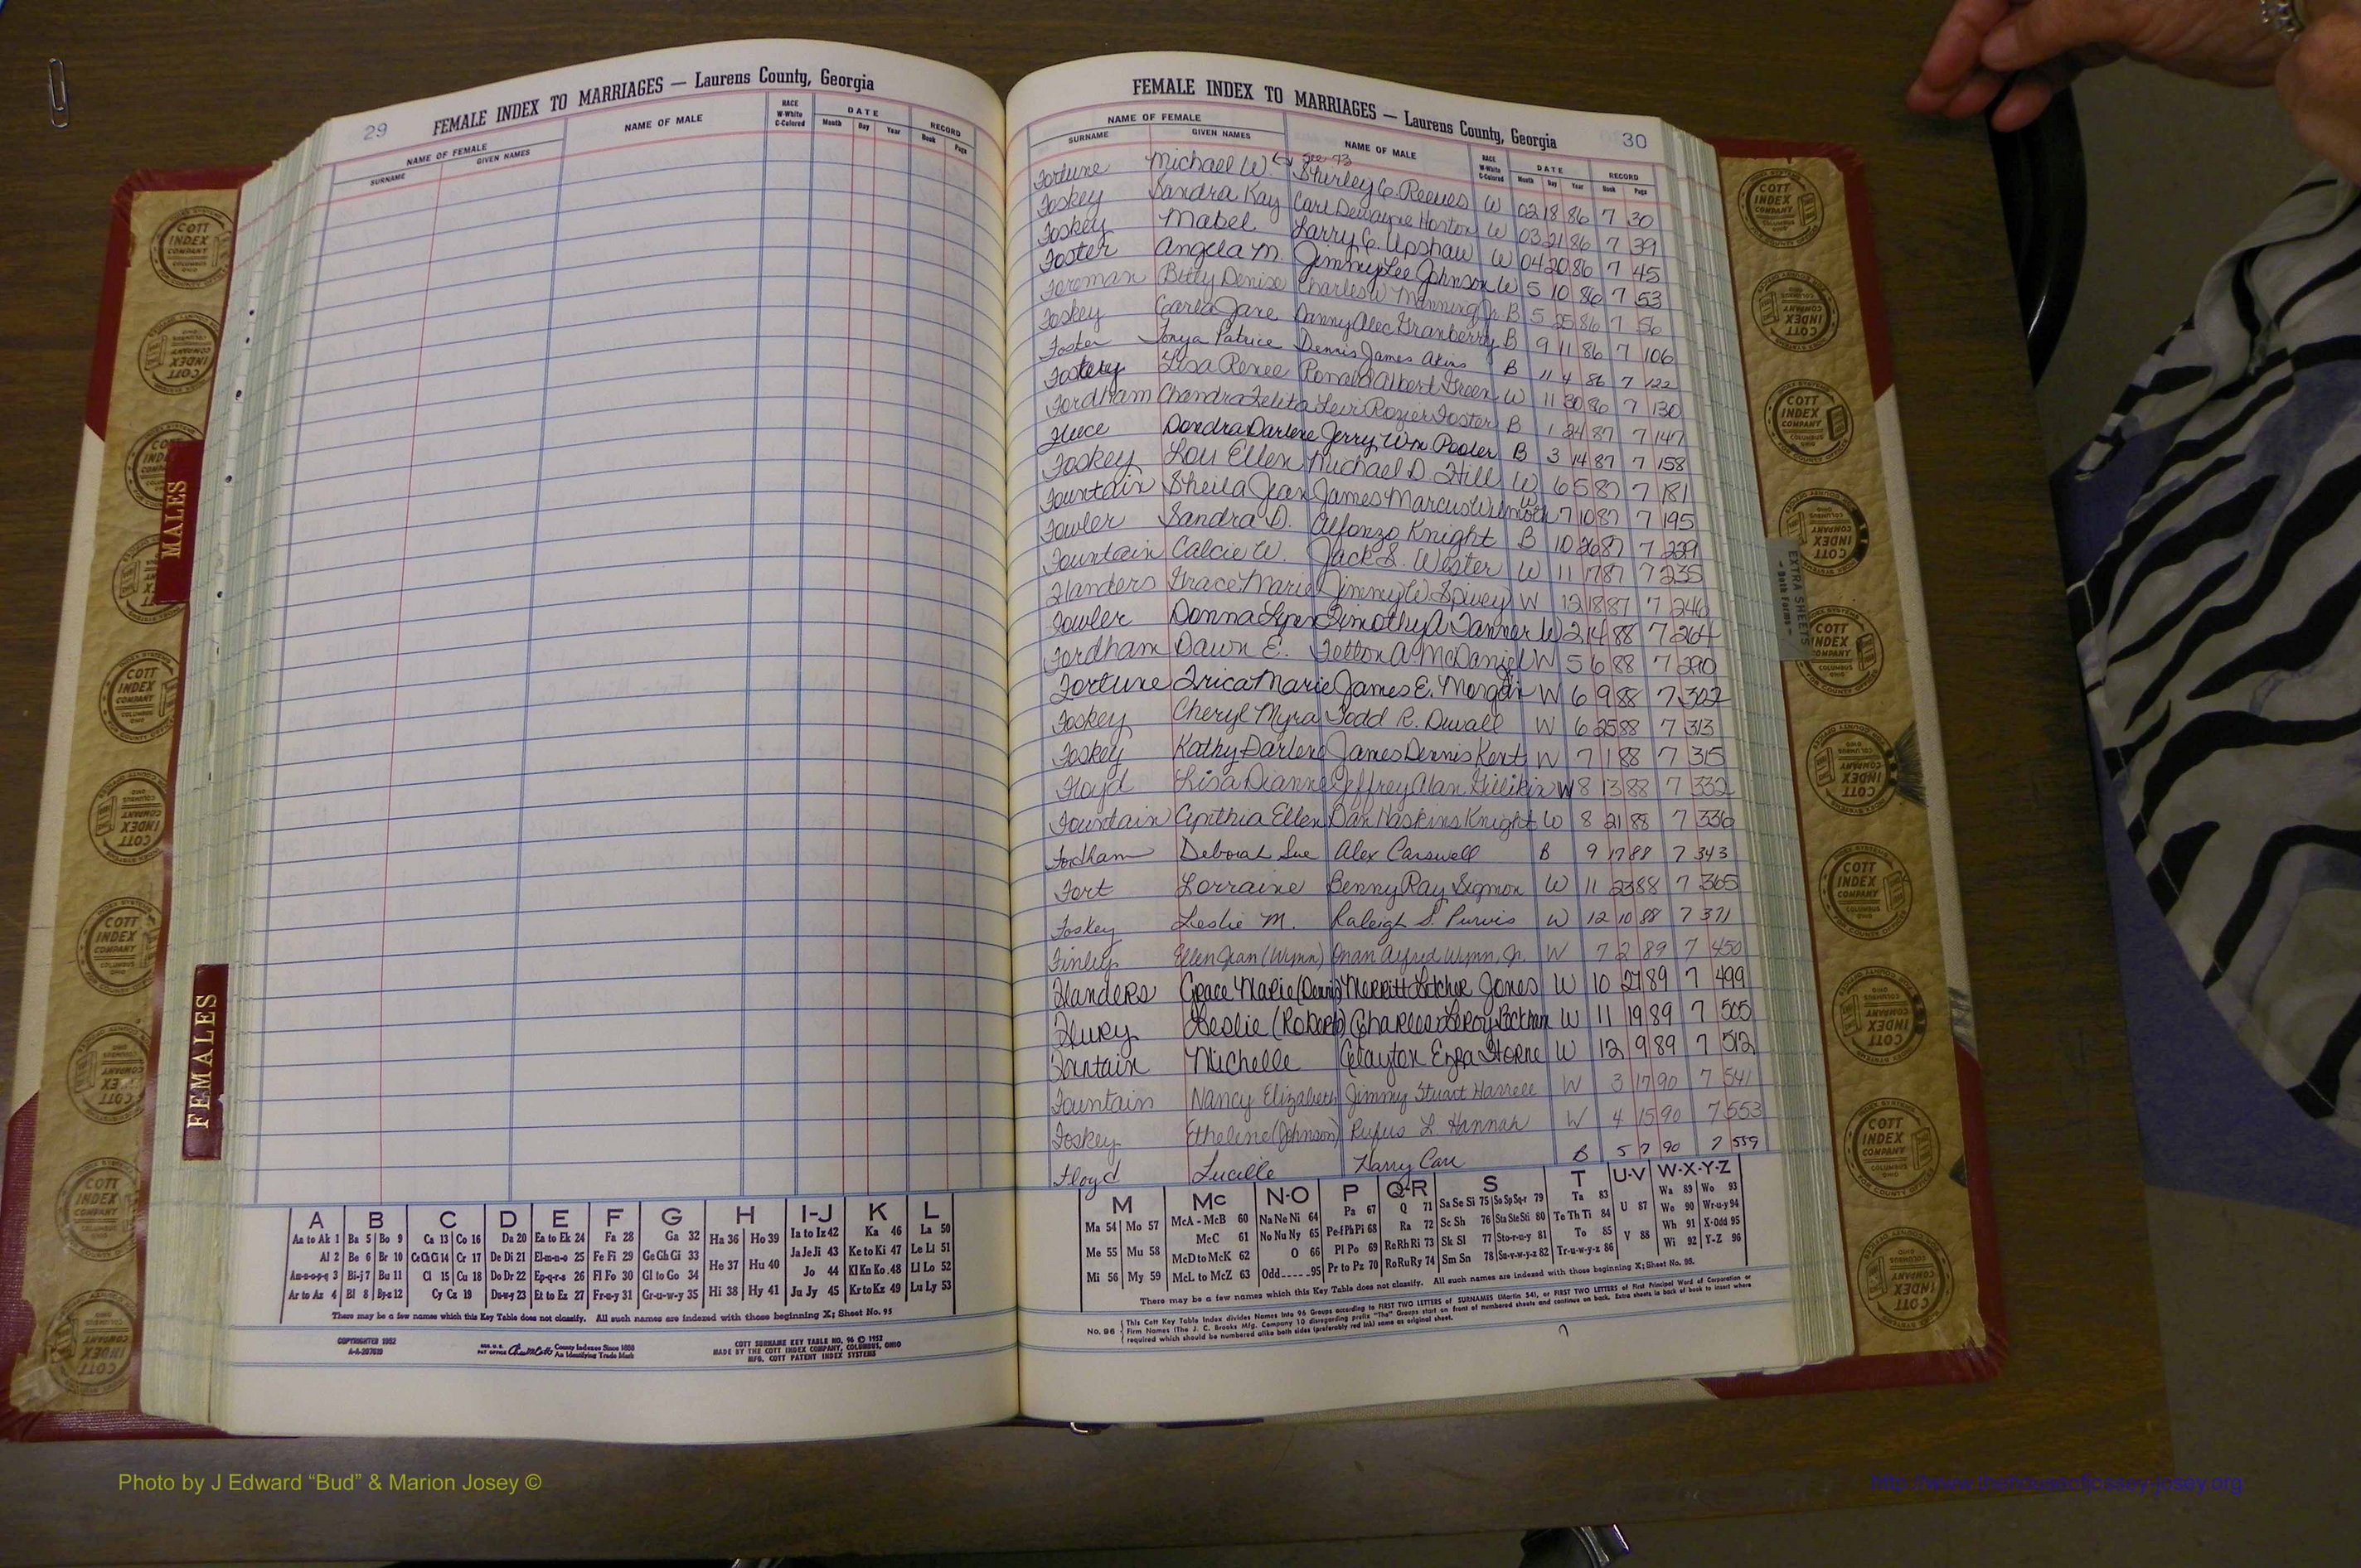 29
FEMALE INDEX TO MARRIAGES — Laurens County, Georgia
NAME OF FEMALE
SURNAME GIVEN NAMES
NAME OF MALE
RACE
W-White
C-Colored
DATE
Month Day Year
RECORD
Book Page
FEMALE INDEX TO MARRIAGES — Laurens County, Georgia
30
NAME OF FEMALE
SURNAME GIVEN NAMES
NAME OF MALE
RACE
W-White
C-Colored
DATE
Month Day Year
RECORD
Book Page
Fortune Michael W. Shirley C. Reeves W 02 18 86 7 30
Foskey Sandra Kay Carl Dewayne Horton W 03 21 86 7 39
Foskey Mabel Larry C. Upshaw W 04 20 86 7 45
Foster Angela M. Jimmy Lee Johnson W 5 10 86 7 53
Foreman Betty Denise Charles W Manning Jr. B 5 25 86 7 56
Foskey Carla Jane Danny Alec Granberry B 9 11 86 7 106
Foster Tonya Patrice Dennis James Akins B 11 4 86 7 122
Lisa Renee Ronald Albert Green W 11 30 86 7 130
Fordham Chandra Felita Levi Rozier Foster B 1 24 87 7 147
Dondra Darlene Jerry Wm Pooler B 3 14 87 7 158
Foskey Lou Ellen Michael D. Hill W 6 5 87 7 181
Fountain Sheila Jean James Marcus W 7 10 87 7 195
Fowler Sandra D. Alfonzo Knight B 10 26 87 7 229
Fountain Calcie W. Jack S. Wester W 11 7 87 7 235
Flanders Grace Marie Jimmy W Spivey W 12 18 87 7 246
Fowler Donna Lynn Timothy A Tanner W 2 14 88 7 264
Fordham Dawn E. Felton A. McDaniel W 5 6 88 7 290
Fortune Trica Marie James E. Morgan W 6 9 88 7 302
Foskey Cheryl Myra Todd R. Duvall W 6 25 88 7 313
Foskey Kathy Darlene James Dennis Kent W 7 1 88 7 315
Floyd Lisa Dianne Jeffrey Alan Gillikin W 8 13 88 7 332
Fountain Cynthia Ellen Dan Haskins Knight W 8 21 88 7 336
Fordham Deborah Sue Alex Carswell B 9 17 88 7 343
Fort Lorraine Benny Ray Sigmon W 11 23 88 7 365
Foskey Leslie M. Raleigh S. Purvis W 12 10 88 7 371
Finley Ellen Jean (Wynn) Onan Alfred Wynn, Jr. W 7 2 89 7 450
Flanders Grace Marie Merritt Jones W 10 27 89 7 499
Flury Leslie (Roberts) Charles LeRoy W 11 19 89 7 505
Fountain Michelle Clayton Ezra Horne W 12 9 89 7 512
Fountain Nancy Elizabeth Jimmy Stuart Harrell W 3 17 90 7 541
Foskey Etheline (Johnson) Rufus L Hannah W 4 15 90 7 553
Floyd Lucille Harry Carr B 5 7 90 7 559
MALES
FEMALES
EXTRA SHEETS
COTT
INDEX
COMPANY
COLUMBUS
OHIO
A B C D E F G H I-J K L
Aa to Ak 1 Ba 5 Bo 9 Ca 13 Co 16 Da 20 Ea to Ek 24 Fa 28 Ga 32 Ha 36 Ho 39 Ia to Iz 42 Ka 46 La 50
Al 2 Be 6 Br 10 Ce Ch Ci 14 Cr 17 De Di 21 El-m-n-o 25 Fe Fi 29 Ge Gh Gi 33 He 37 Hu 40 Ja Je Ji 43 Ke to Ki 47 Le Li 51
Am-n-o-p-q 3 Bi-j 7 Bu 11 Cl 15 Cu 18 Do Dr 22 Ep-q-r-s 26 Fl Fo 30 Gl to Go 34 Jo 44 Kl Kn Ko 48 Ll Lo 52
Ar to Az 4 Bl 8 By-z 12 Cy Cz 19 Du-w-y 23 Et to Ez 27 Fr-u-y 31 Gr-u-w-y 35 Hi 38 Hy 41 Ju Jy 45 Kr to Kz 49 Lu Ly 53
There may be a few names which this Key Table does not classify. All such names are indexed with those beginning X; Sheet No. 95
COPYRIGHTED 1952
County Indexes Since 1888
An Identifying Trade Mark
COTT SURNAME KEY TABLE NO. 96 © 1952
MADE BY THE COTT INDEX COMPANY, COLUMBUS, OHIO
MFG. COTT PATENT INDEX SYSTEMS
M Mc N-O P Q-R S T U-V W-X-Y-Z
Ma 54 Mo 57 McA - McB 60 Na Ne Ni 64 Pa 67 Q 71 Sa Se Si 75 So Sp Sq-r 79 Ta 83 U 87 Wa 89 Wo 93
Me 55 Mu 58 McC 61 No Nu Ny 65 Pe-f Ph Pi 68 Ra 72 Sc Sh 76 Sta Ste Sti 80 Te Th Ti 84 We 90 Wr-u-y 94
McD to McK 62 O 66 Pl Po 69 Re Rh Ri 73 Sk Sl 77 Sto-r-u-y 81 To 85 V 88 Wh 91 X-Odd 95
Mi 56 My 59 McL to McZ 63 Odd 95 Pr to Pz 70 Ro Ru Ry 74 Sm Sn 78 Su-v-w-y-z 82 Tr-u-w-y-z 86 Wi 92 Y-Z 96
There may be a few names which this Key Table does not classify. All such names are indexed with those beginning X; Sheet No. 95.
No. 96 This Cott Key Table Index divides Names into 96 Groups according to FIRST TWO LETTERS of SURNAMES (Martin 54), or FIRST TWO LETTERS of First Principal Word of Corporation or
Firm Names (The J. C. Brooks Mfg. Company 10 disregarding prefix "The" Groups start on front of numbered sheets and continue on back. Extra sheets in back of book to insert where
required which should be numbered alike both sides (preferably red ink) same as original sheet.
Photo by J Edward “Bud” & Marion Josey ©